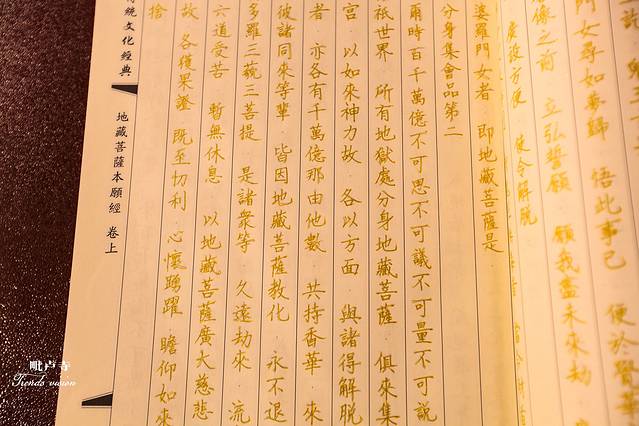 門女尋如夢歸 悟此事已 便於覺華
像之前 立弘誓願 願我盡未來劫
廣設方便 使令解脫
婆羅門女者 即地藏菩薩是
分身集會品第二
爾時百千萬億不可思不可議不可量不可說
祇世界 所有地獄處分身地藏菩薩 俱來集
宮 以如來神力故 各以方面 與諸得解脫
者 亦各有千萬億那由他數 共持香華 來
彼諸同來等輩 皆因地藏菩薩教化 永不退
多羅三藐三菩提 是諸眾等 久遠劫來 流
六道受苦 暫無休息 以地藏菩薩廣大慈悲
故 各獲果證 既至忉利 心懷踴躍 瞻仰如來
捨
傳統文化經典
地藏菩薩本願經 卷上
毗卢寺
Trends vision